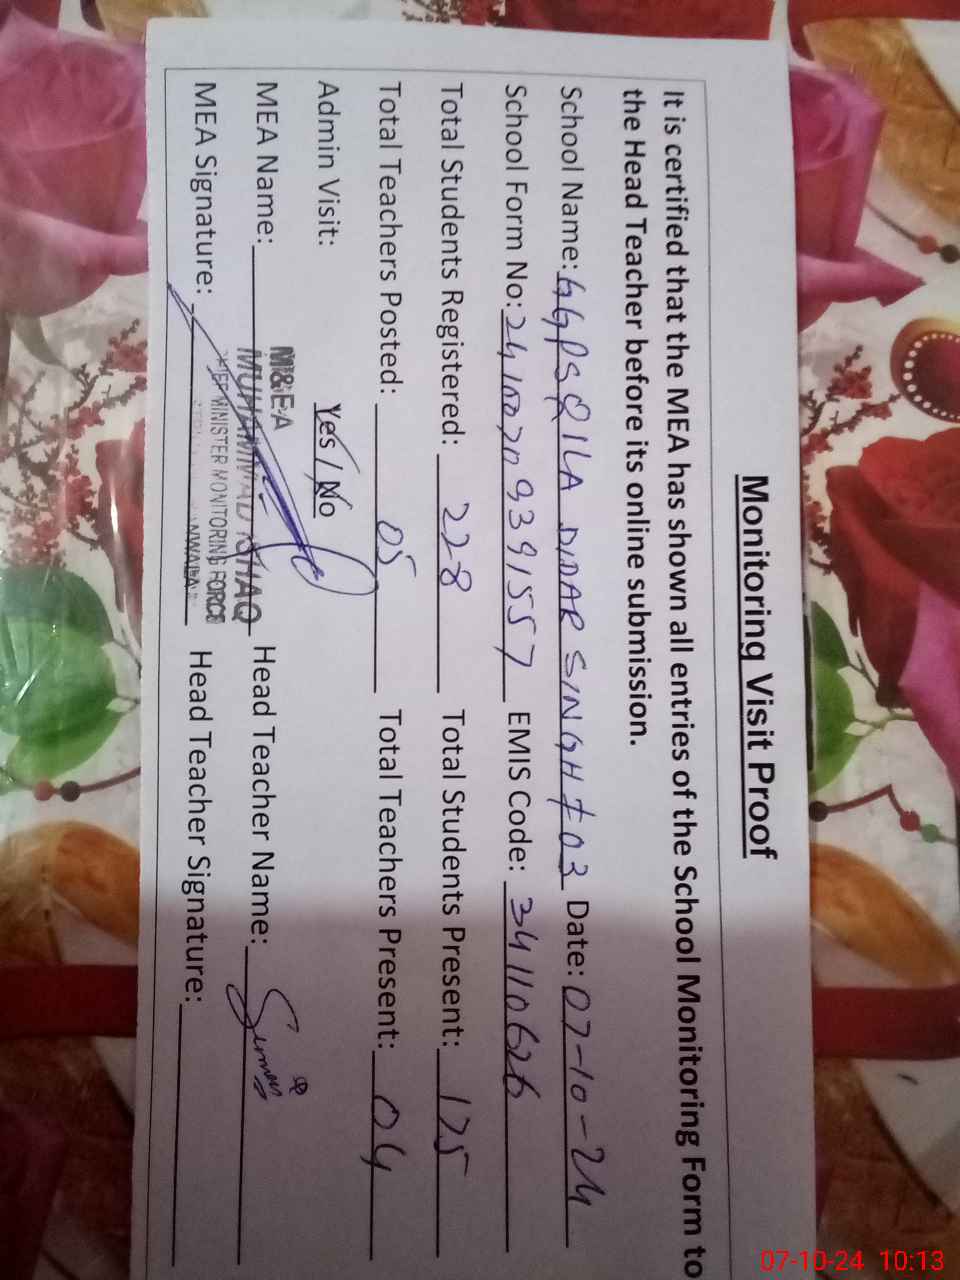 Monitoring Visit Proof
It is certified that the MEA has shown all entries of the School Monitoring Form to
the Head Teacher before its online submission.
School Name: GGPS QILA DIDAR SINGH 703 Date: 07-10-24
School Form No: 2410070939157 EMIS Code: 34110626
Total Students Registered: 228 Total Students Present: 175
Total Teachers Posted: 05 Total Teachers Present: 04
Admin Visit: Yes / No
M&EA
MEA Name: MUHAMMAD ISHAQ Head Teacher Name:
CHIEF MINISTER MONITORING FORCE
MEA Signature: Head Teacher Signature:
07-10-24 10:13